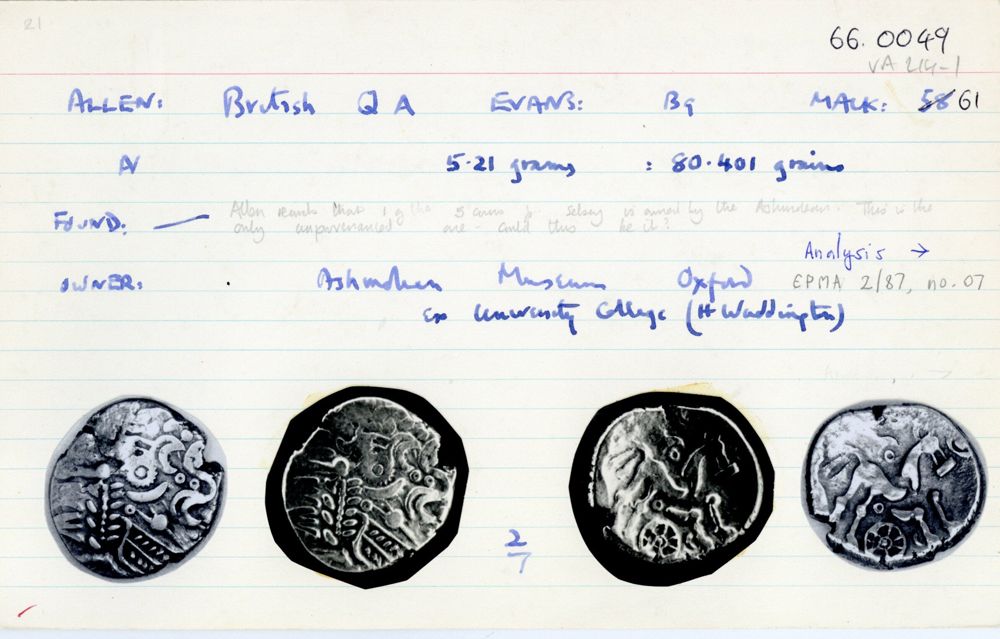 21
66.0049
VA 214-1
ALLEN: British Q A EVANS: B9 MACK: 58 61
N 5.21 grams : 80.401 grains
FOUND: — Allen records that 1 of the 5 coins fr. Selsey is owned by the Ashmolean. This is the
only unprovenanced one - could this be it?
Analysis →
OWNER: Ashmolean Museum Oxford EPMA 2/87, no. 07
ex University College (H Waddington)
2/7